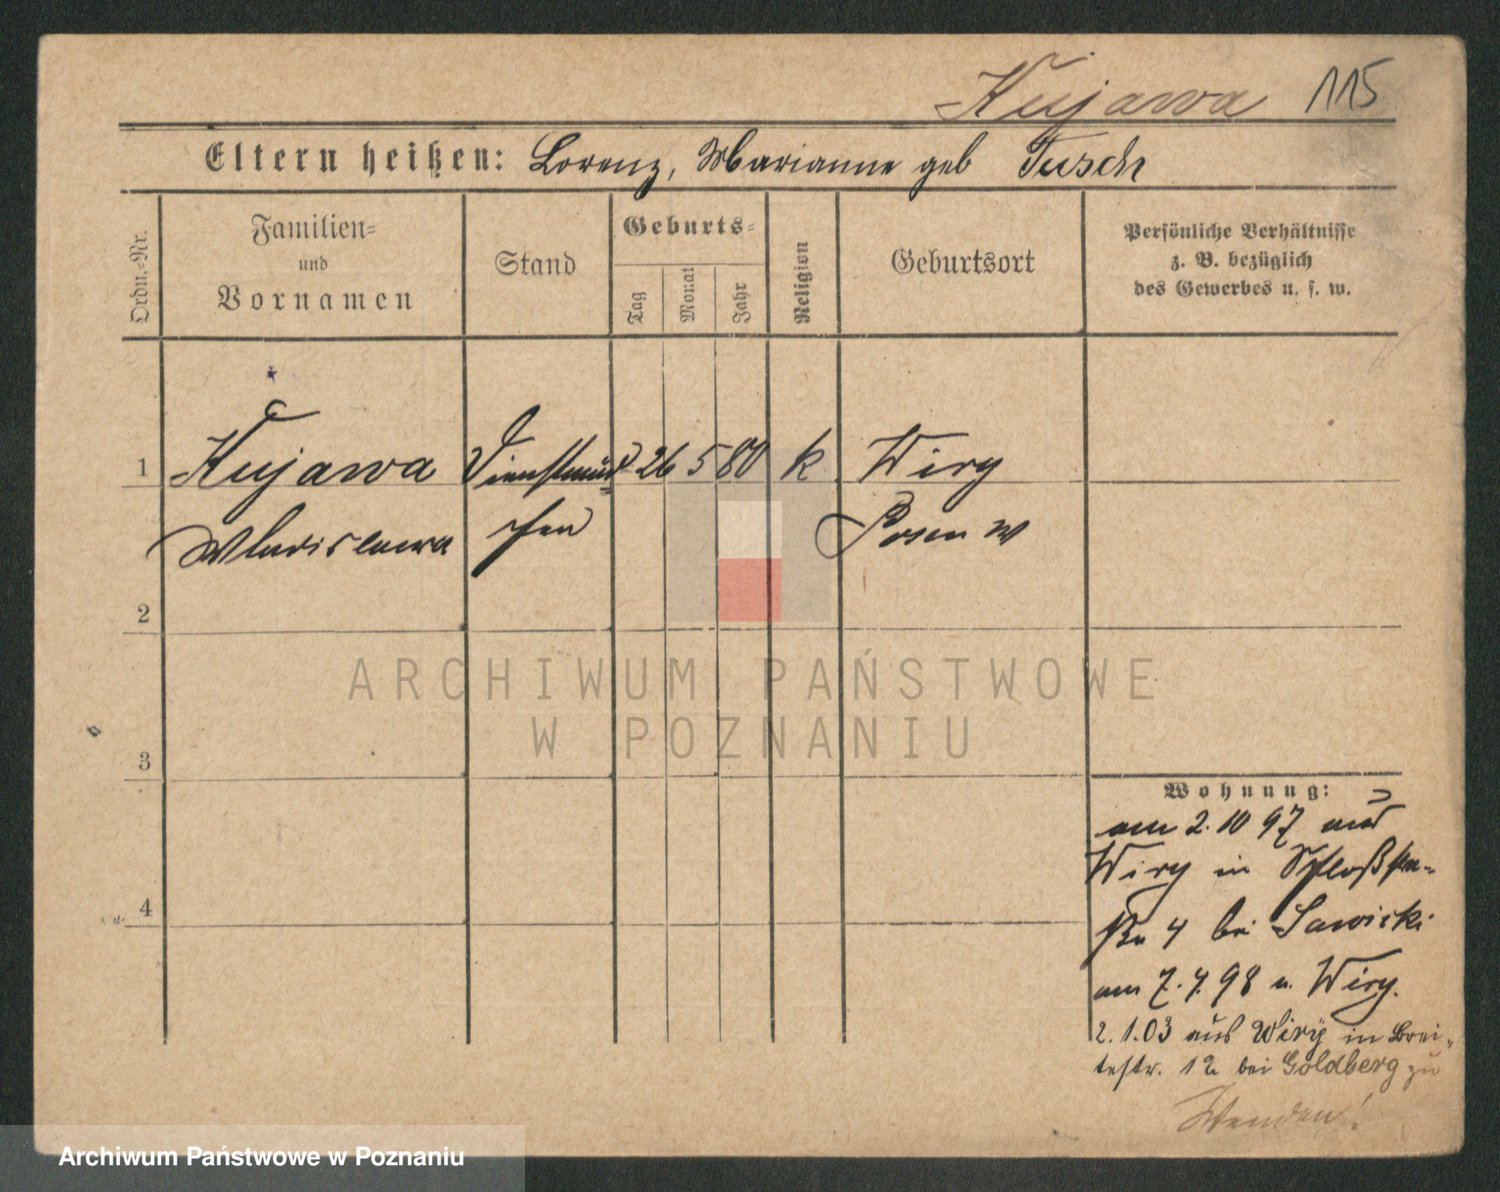 Kujawa 115
Eltern heißen: Lorenz, Marianne geb Tusch
Ordn.-Nr.
Familien-
und
Vornamen
Stand
Geburts-
Tag
Monat
Jahr
Religion
Geburtsort
Persönliche Verhältnisse
z. B. bezüglich
des Gewerbes u. s. w.
1 Kujawa Dienstmäd 26 5 80 k Wiry
Wladislawa chen Posen W
2
ARCHIWUM PAŃSTWOWE
W POZNANIU
3
Wohnung:
am 2. 10 97 aus
Wiry in Schloßstra-
ße 4 bei Sawicki
4
am 7. 4. 98 n. Wiry.
2. 1. 03 aus Wiry in Brei-
testr. 12 bei Goldberg zu
Wenden!
Archiwum Państwowe w Poznaniu